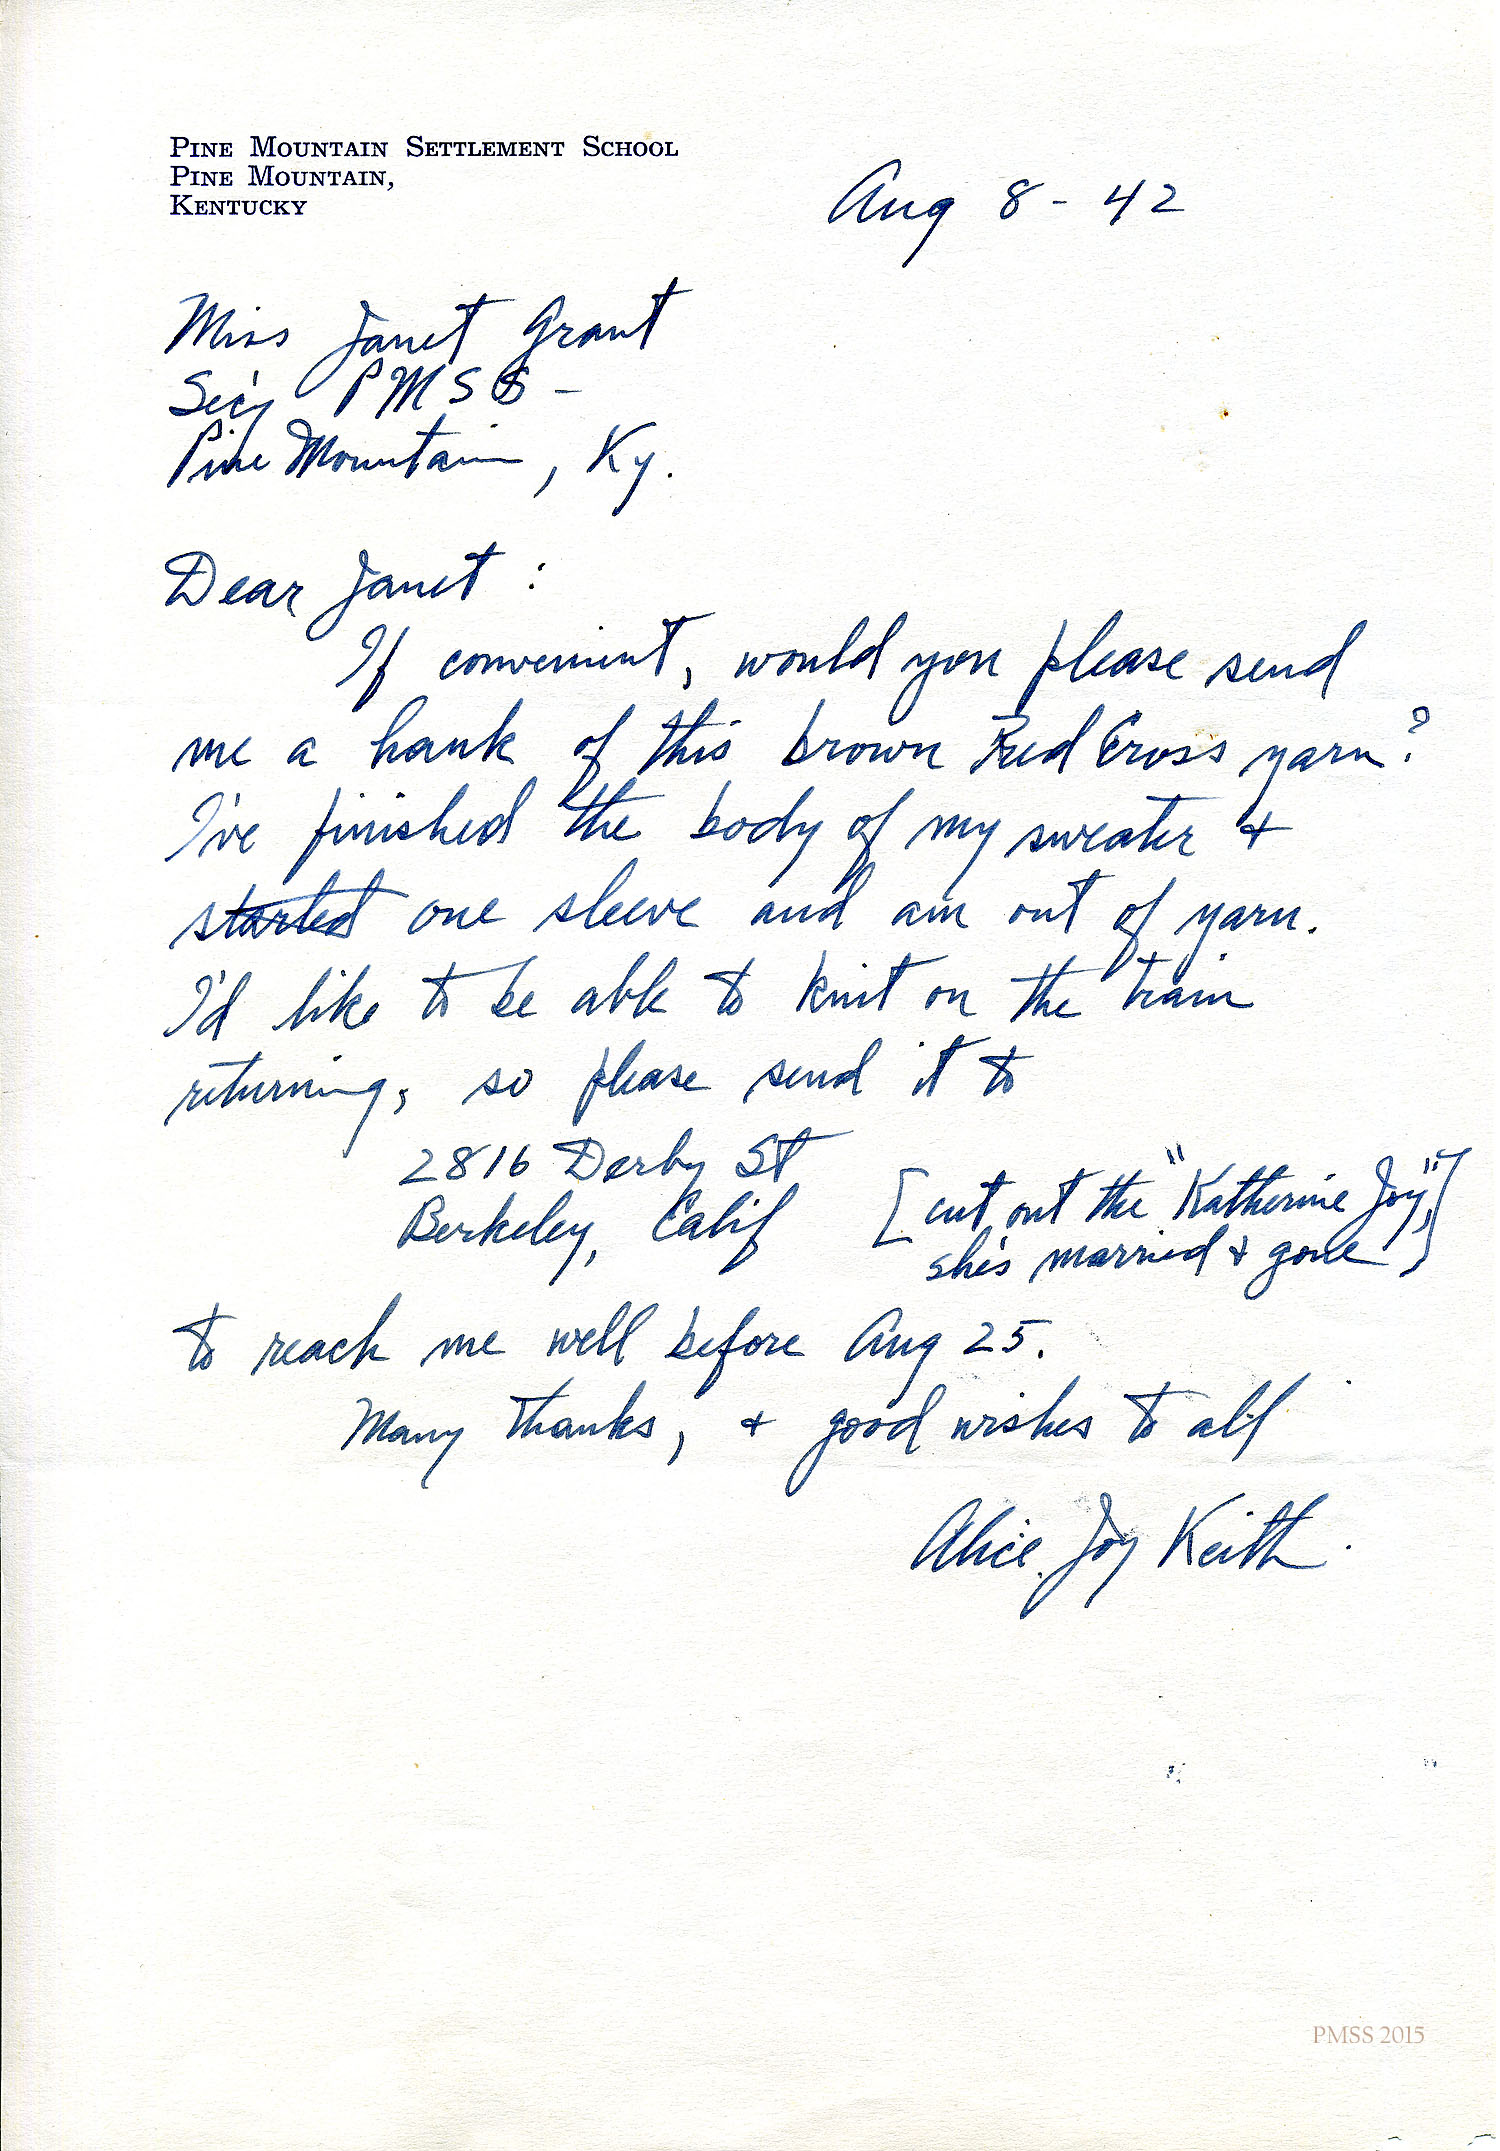 PINE MOUNTAIN SETTLEMENT SCHOOL
PINE MOUNTAIN,
KENTUCKY
Aug 8 - 42
Miss Janet Grant
Sec'y PMSS -
Pine Mountain, Ky.
Dear Janet :
If convenient, would you please send
me a hank of this brown Red Cross yarn?
I've finished the body of my sweater +
started one sleeve and am out of yarn.
I'd like to be able to knit on the train
returning, so please send it to
2816 Derby St
Berkeley, Calif
[cut out the "Katherine Joy",
she's married + gone]
to reach me well before Aug 25.
Many thanks, + good wishes to all
Alice Joy Keith.
PMSS 2015